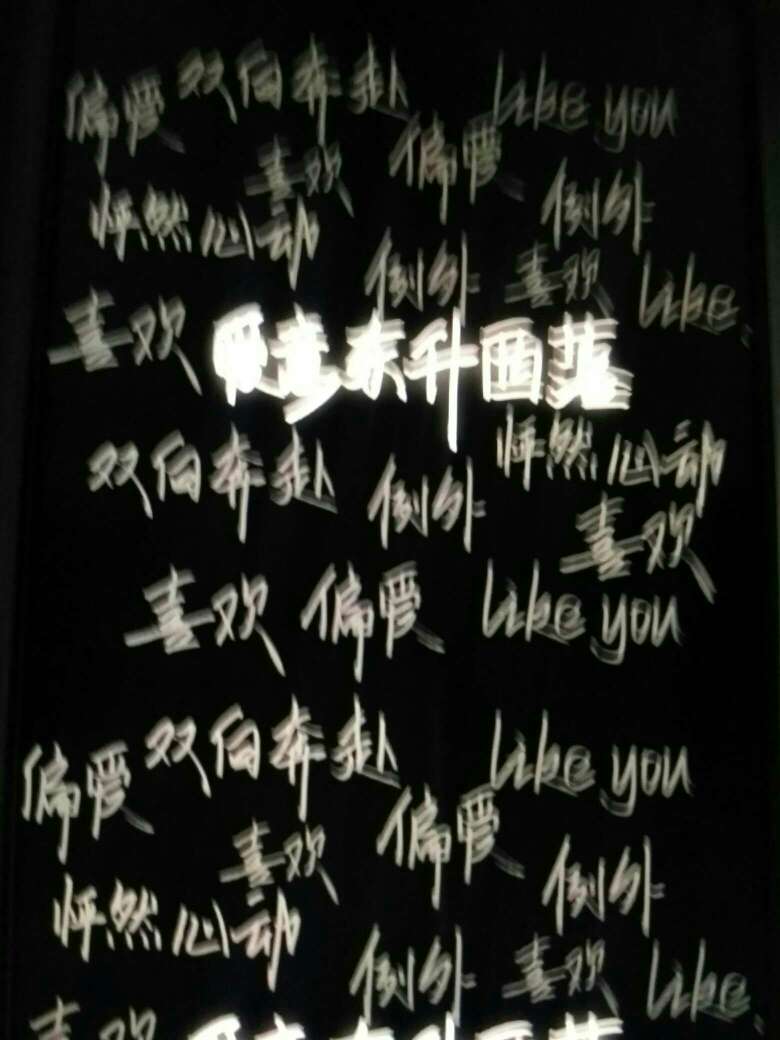 偏爱 双向奔赴 like you
喜欢 偏爱
怦然心动 例外
例外 喜欢 like.
喜欢 爱意东升西落
双向奔赴 例外 怦然心动
喜欢
喜欢 偏爱 like you
偏爱 双向奔赴 like you
喜欢 偏爱
怦然心动 例外
例外 喜欢 like.
喜欢 爱意东升西落